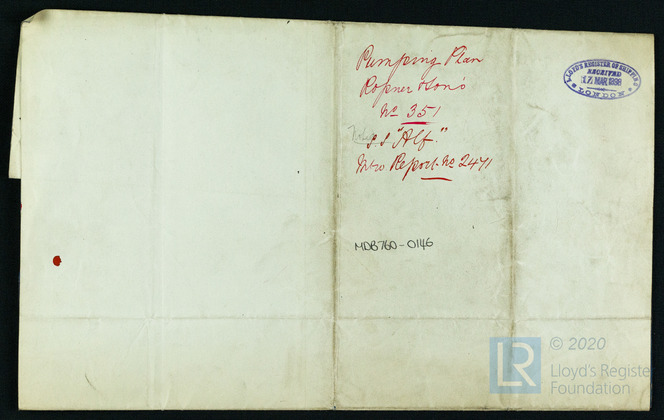 Pumping Plan
Ropner & Son's
No 351
S.S "Alf."
Mbro Report No 2471
MDB760-0146
LLOYD'S REGISTER OF SHIPPING
RECEIVED
MAR 1898
LONDON
LR © 2020
Lloyd's Register
Foundation